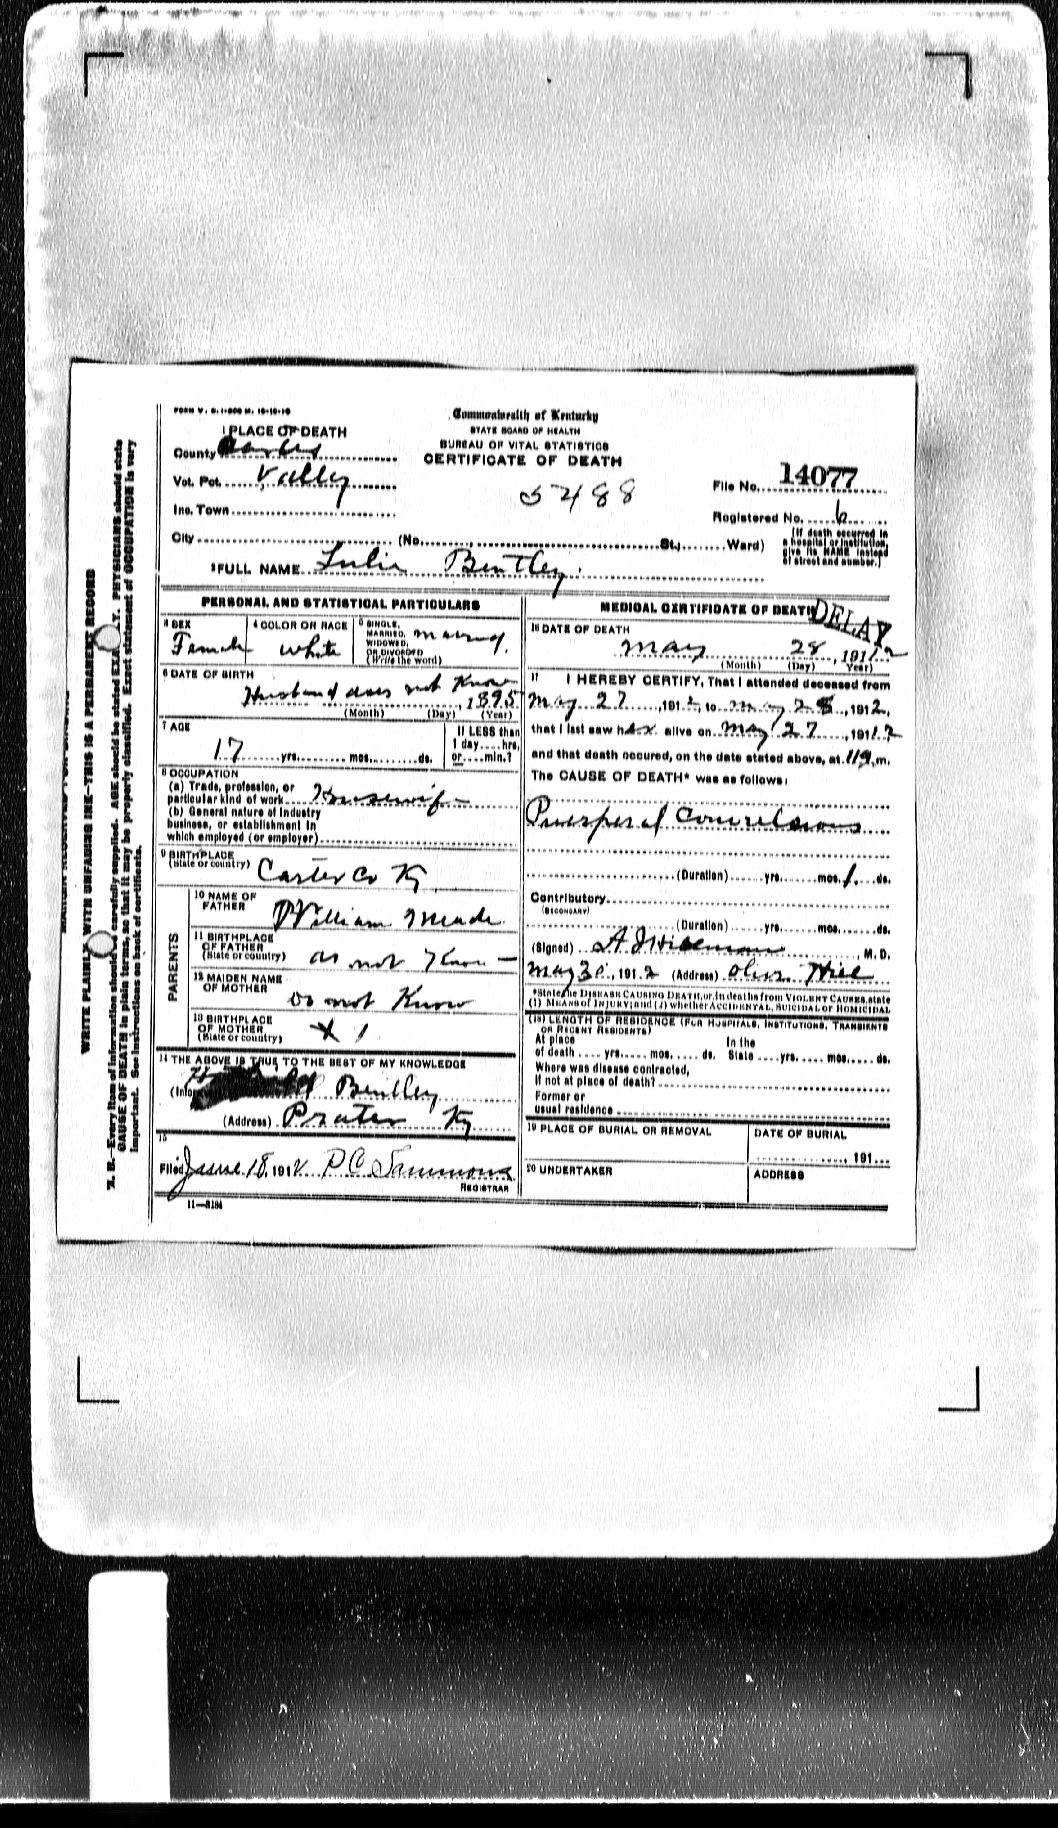 FORM V. S. 1-500 M. 10-10-10
Commonwealth of Kentucky
STATE BOARD OF HEALTH
BUREAU OF VITAL STATISTICS
CERTIFICATE OF DEATH
1 PLACE OF DEATH
County Carter
Vot. Pct. Valley
Inc. Town
City (No. St.; Ward)
5488
File No. 14077
Registered No. 6
(If death occurred in
a hospital or institution,
give its NAME instead
of street and number.)
2 FULL NAME Bentley
PERSONAL AND STATISTICAL PARTICULARS
3 SEX
Female
4 COLOR OR RACE
white
5 SINGLE,
MARRIED,
WIDOWED,
OR DIVORCED
(Write the word)
married
6 DATE OF BIRTH
Husband does not Know, 1895
(Month) (Day) (Year)
7 AGE
17 yrs. mos. ds.
If LESS than
1 day hrs.
or min.?
8 OCCUPATION
(a) Trade, profession, or
particular kind of work Housewife
(b) General nature of industry
business, or establishment in
which employed (or employer)
9 BIRTHPLACE
(State or country) Carter Co Ky
PARENTS
10 NAME OF
FATHER William Meade
11 BIRTHPLACE
OF FATHER
(State or country) do not Know
12 MAIDEN NAME
OF MOTHER Do not Know
13 BIRTHPLACE
OF MOTHER
(State or country)
14 THE ABOVE IS TRUE TO THE BEST OF MY KNOWLEDGE
Bentley
(Address) Prater Ky
15
Filed June 18, 1912 P C Sammons
REGISTRAR
11—3184
MEDICAL CERTIFICATE OF DEATH
DELAY
16 DATE OF DEATH
May 28, 1912
(Month) (Day) (Year)
17 I HEREBY CERTIFY, That I attended deceased from
May 27, 1912, to May 28, 1912,
that I last saw her alive on May 27, 1912
and that death occured, on the date stated above, at m.
The CAUSE OF DEATH* was as follows:
Puerperal Convulsions
(Duration) yrs. mos. 1 ds.
Contributory
(SECONDARY)
(Duration) yrs. mos. ds.
(Signed) M. D.
May 30, 1912 (Address) Olive Hill
*State the DISEASE CAUSING DEATH, or, in deaths from VIOLENT CAUSES, state
(1) MEANS OF INJURY; and (2) whether ACCIDENTAL, SUICIDAL or HOMICIDAL
(18) LENGTH OF RESIDENCE (FOR HOSPITALS, INSTITUTIONS, TRANSIENTS
OR RECENT RESIDENTS)
At place In the
of death yrs. mos. ds. State yrs. mos. ds.
Where was disease contracted,
If not at place of death?
Former or
usual residence
19 PLACE OF BURIAL OR REMOVAL
DATE OF BURIAL
, 191
20 UNDERTAKER
ADDRESS
WRITE PLAINLY WITH UNFADING INK—THIS IS A PERMANENT RECORD
N. B.—Every item of information should be carefully supplied. AGE should be stated EXACTLY. PHYSICIANS should state
CAUSE OF DEATH in plain terms, so that it may be properly classified. Exact statement of OCCUPATION is very
important. See instructions on back of certificate.